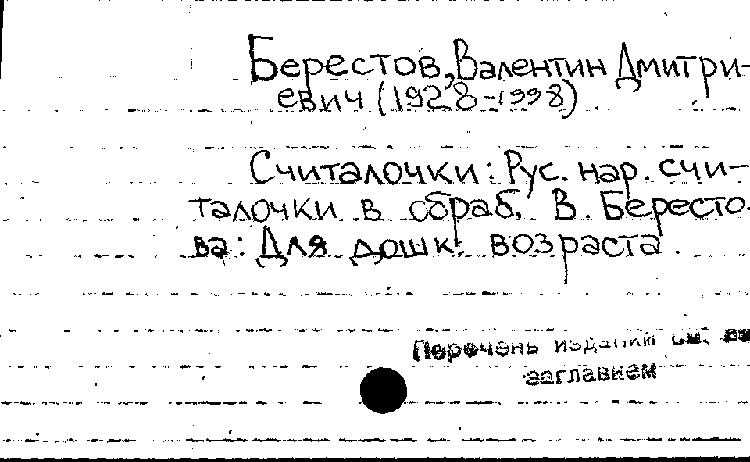 Берестов, Валентин Дмитри-
евич (1928-1998)
Считалочки: Рус. нар. счи-
талочки в обраб. В. Бересто-
ва: Для дошк. возраста.
Перечень изданий см. за
заглавием